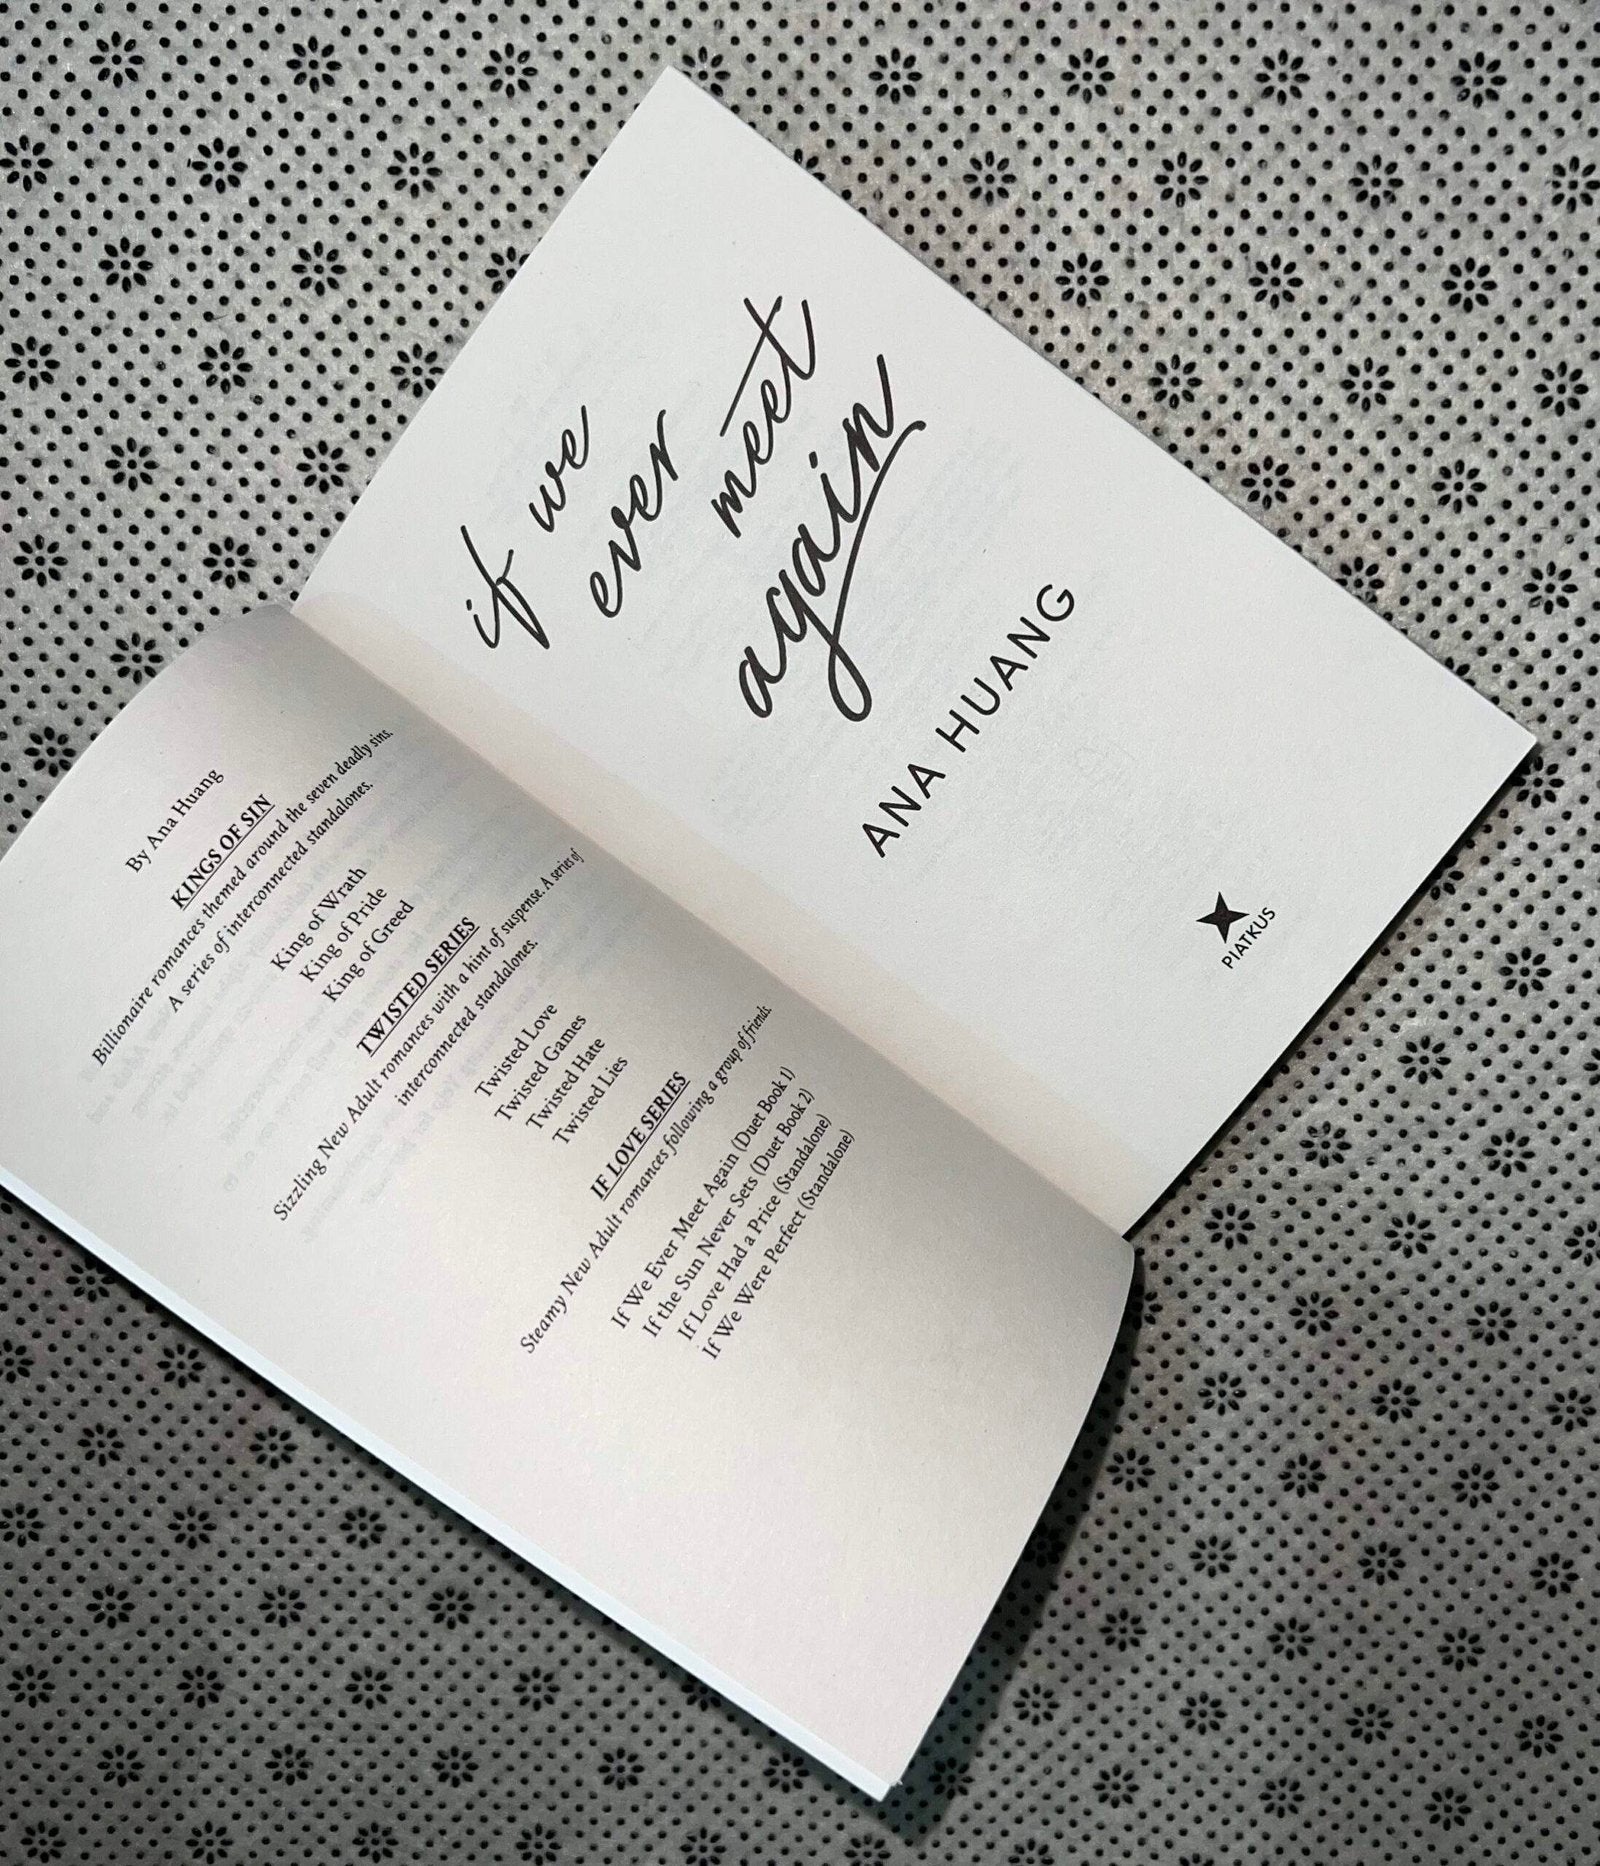 By Ana Huang
KINGS OF SIN
Billionaire romances themed around the seven deadly sins.
A series of interconnected standalones.
King of Wrath
King of Pride
King of Greed
TWISTED SERIES
Sizzling New Adult romances with a hint of suspense. A series of
interconnected standalones.
Twisted Love
Twisted Games
Twisted Hate
Twisted Lies
IF LOVE SERIES
Steamy New Adult romances following a group of friends.
If We Ever Meet Again (Duet Book 1)
If the Sun Never Sets (Duet Book 2)
If Love Had a Price (Standalone)
If We Were Perfect (Standalone)
if we
ever
meet
again
ANA HUANG
PIATKUS